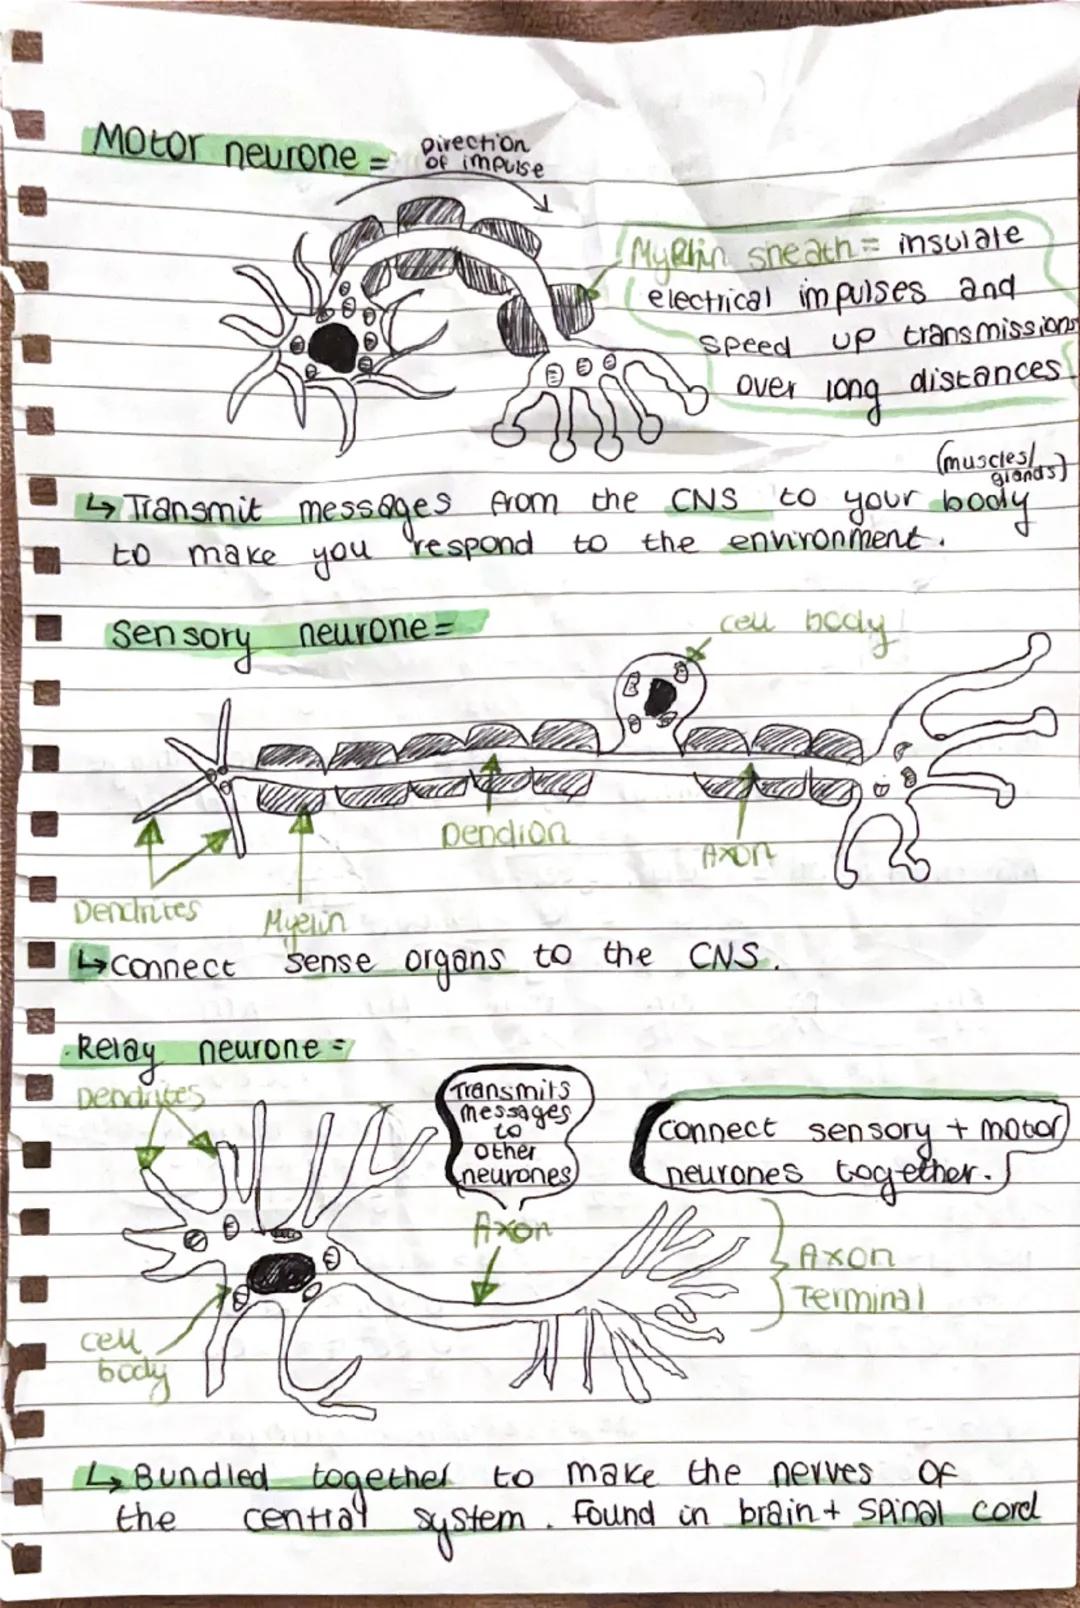 Motor neurone =
Direction
of impulse
Myelin sheath = insulate
electrical impulses and
speed up transmissions
over long distances
(muscles/
glands)
↳ Transmit messages from the CNS to your body
to make you respond to the environment.
Sensory neurone=
cell body
Dendion
Axon
Dendrites
Myelin
↳ Connect sense organs to the CNS.
Relay neurone =
Dendrites
Transmits
messages
to
other
neurones
connect sensory + motor
neurones together.
Axon
Axon
Terminal
cell
body
↳ Bundled together to make the nerves of
the central system. Found in brain + spinal cord